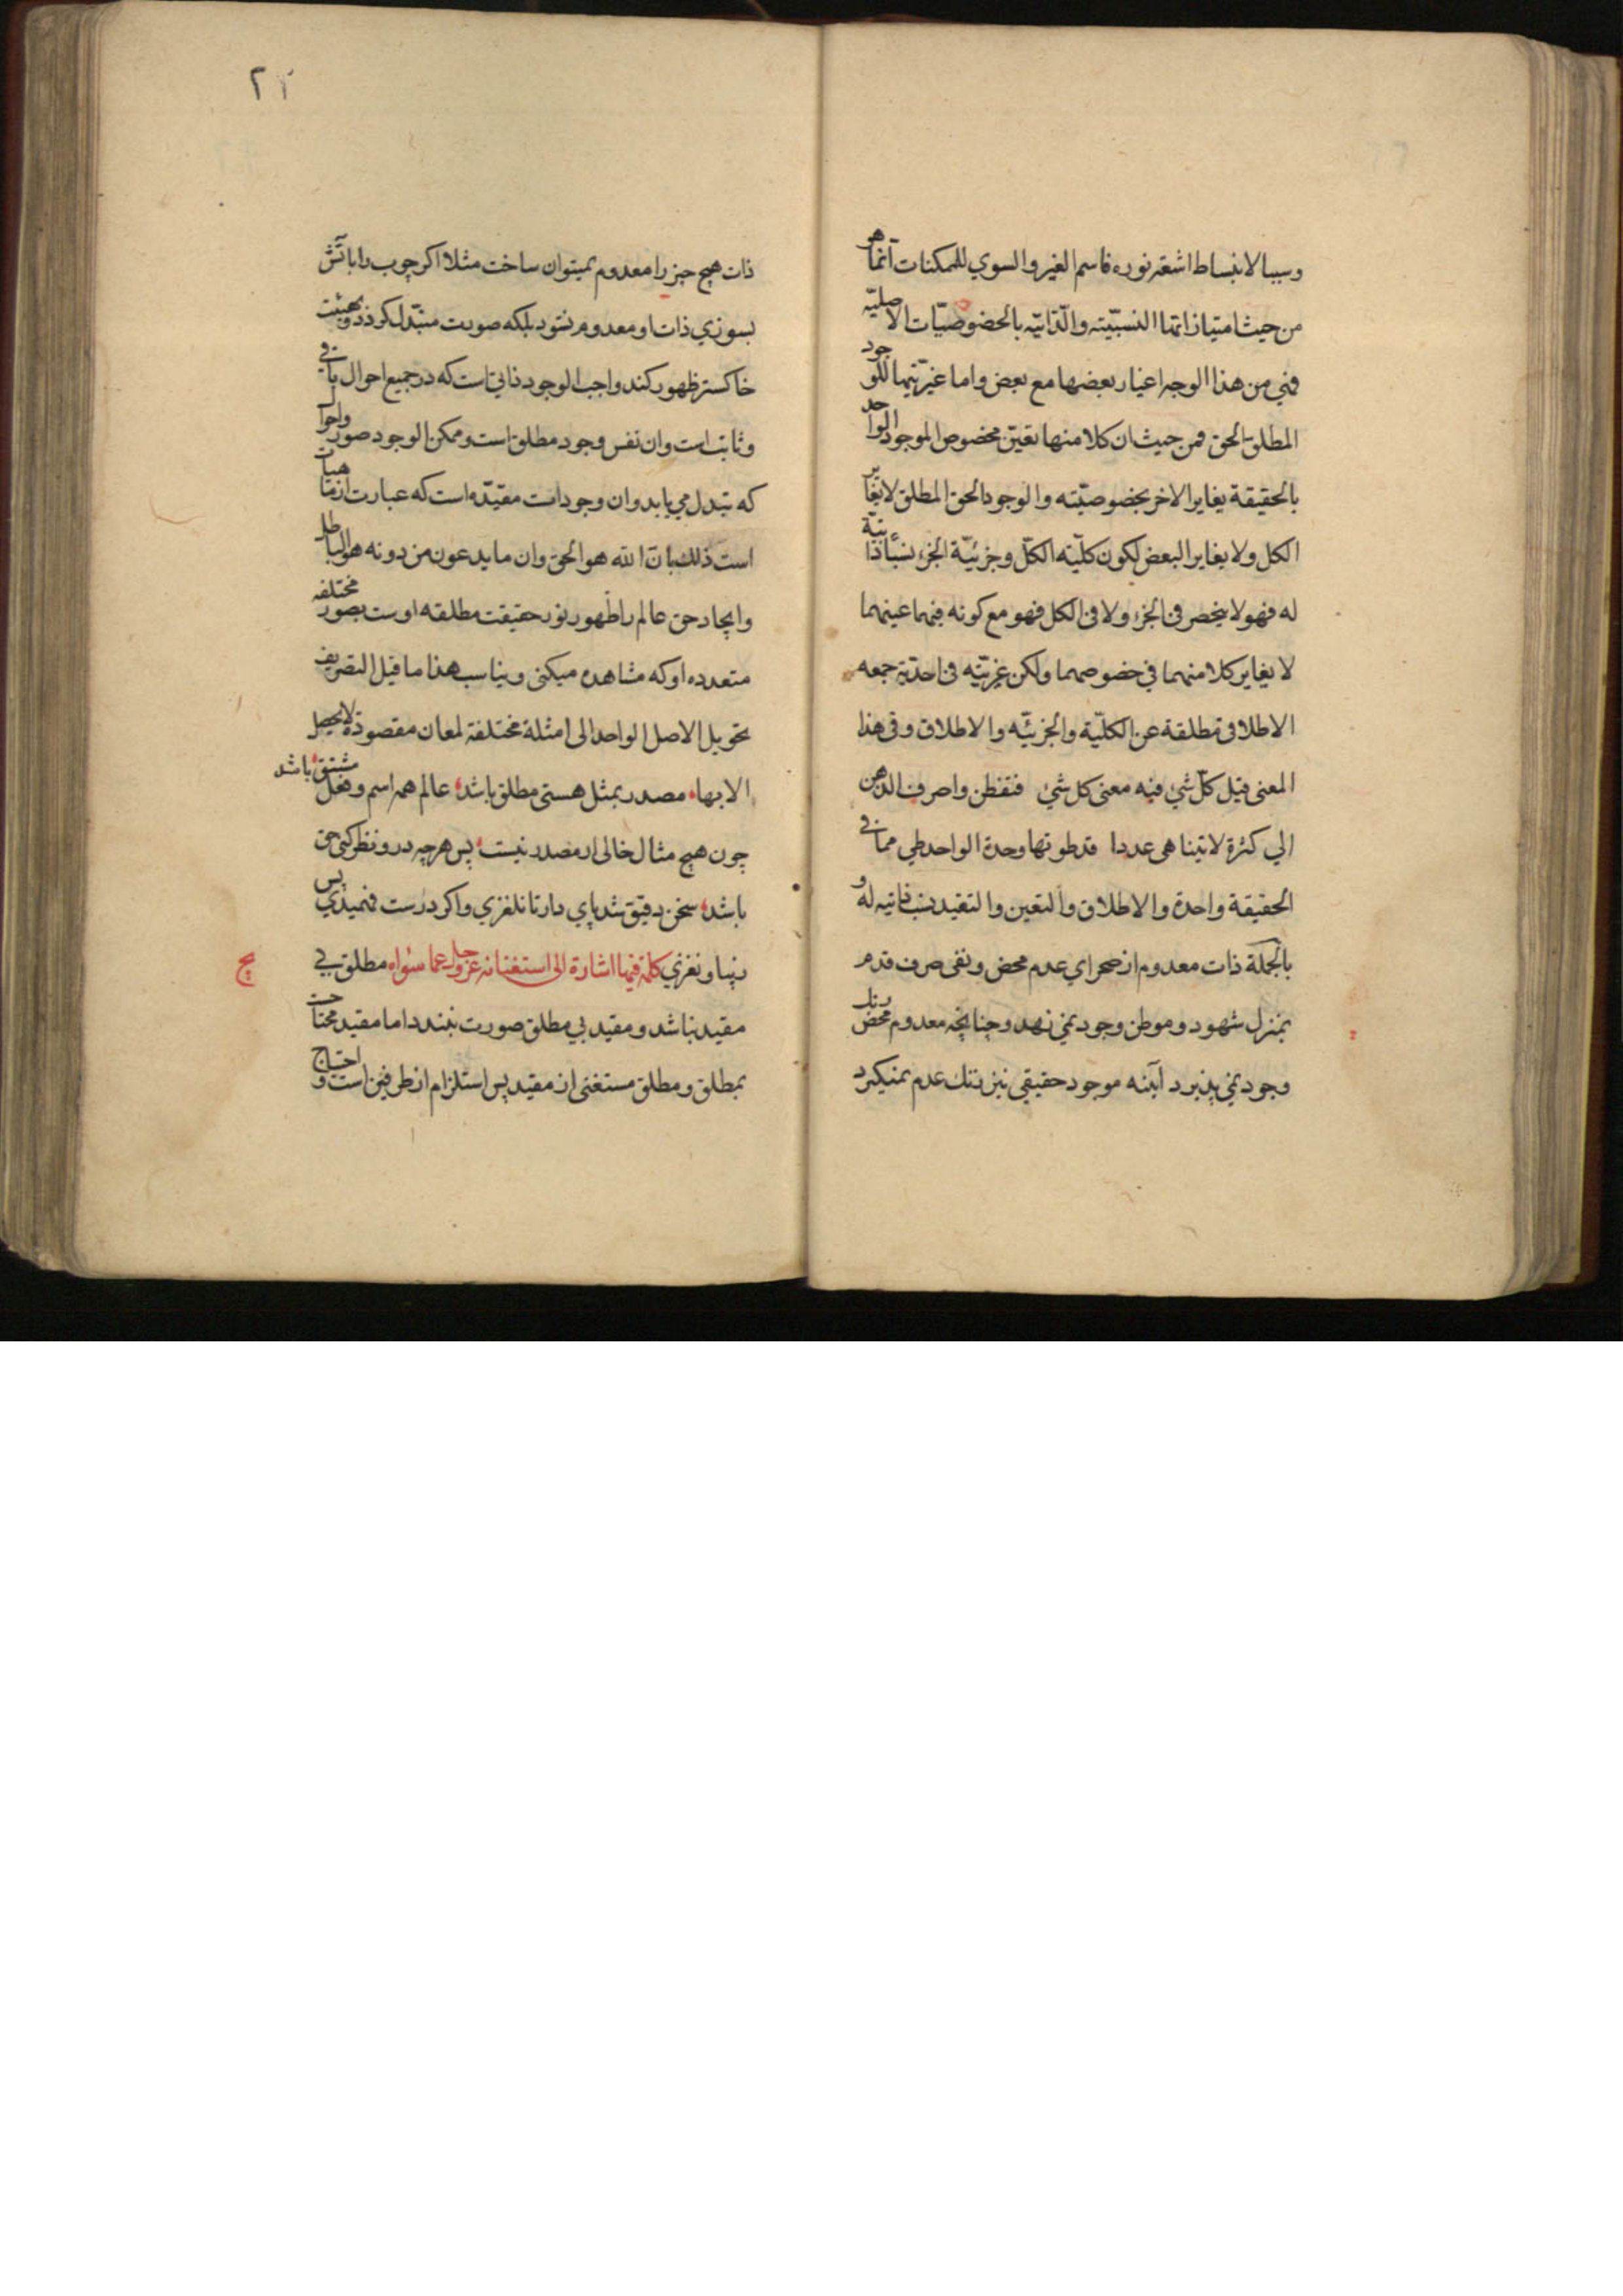 وسببا لانبساط اشعة نوره فاسم الغير والسوي للممكنات انما هو
من حيث امتيازاتها النسبيّته والذّاتيّه بالخصوصيّات الاصليّه
فهي من هذا الوجه اغيار بعضها مع بعض واما غيريّتها للوجود
المطلق الحق فمن حيث ان كلا منها تعيّن مخصوص للموجود الواحد
بالحقيقة يغاير الاخر بخصوصيّته والوجود الحق المطلق لا يغاير
الكل ولا يغاير البعض لكون كلّيته الكلّ وجزئيّة الجزء نسبا ذاتيّة
له فهو لا ينحصر فى الجزء ولا فى الكل فهو مع كونه فيهما عينهما
لا يغاير كلا منهما في خصوصهما ولكن غيريّته فى احديّة جمعه
الاطلاقى مطلقة عن الكليّة والجزئيّه والاطلاق وفى هذا
المعنى قيل كلّ شي فيه معنى كل شي فتفطن واصرف الذهن
الي كثرة لا يتناهى عددا قد طوتها وحدة الواحد طي فما فى
الحقيقة واحدة والاطلاق والتعين والتقيد نسب ذاتيه له و
بالجملة ذات معدوم از صحراي عدم محض ونفى صرف قدم
بمنزل شهود وموطن وجود نمي نهد وچنانچه معدوم محض رنك
وجود نمي پذيرد آينه موجود حقيقي نيز رنك عدم نميكيرد
٢٢
ذات هيچ چيز را معدوم نميتوان ساخت مثلا اكر چوب را باتش
بسوزي ذات او معدوم نشود بلكه صورت متبدّل كردد وبهيئت
خاكستر ظهور كند واجب الوجود ذاتي است كه در جميع احوال باقى
وثابت است وان نفس وجود مطلق است وممكن الوجود صور واحوال
كه تبدل مي يابد وان وجودات مقيّده است كه عبارت از ماهيات
است ذلك بان الله هو الحق وان ما يدعون من دونه هو الباطل
وايجاد حق عالم را ظهور نور حقيقت مطلقه اوست بصور مختلفه
متعدده او كه مشاهده ميكنى ويناسب هذا ما قيل التصريف
تحويل الاصل الواحد الى امثلة مختلفة لمعان مقصودة لا يحصل
الا بها مصدر بمثل هستى مطلق باشد عالم همه اسم وفعل مشتق باشد
چون هيچ مثال خالى از مصدر نيست پس هرچه درو نظر كنى حق
باشد سخن دقيق شد پاي دار تا نلغزي واكر درست فهميدي پس
بپا ونغزي كلمة فيها اشارة الى استغنائه عزوجل عما سواه مطلق بي
مقيد نباشد ومقيد بي مطلق صورت نبندد اما مقيد محتاجست
بمطلق ومطلق مستغنى از مقيد پس استلزام از طرفين است و احتياج